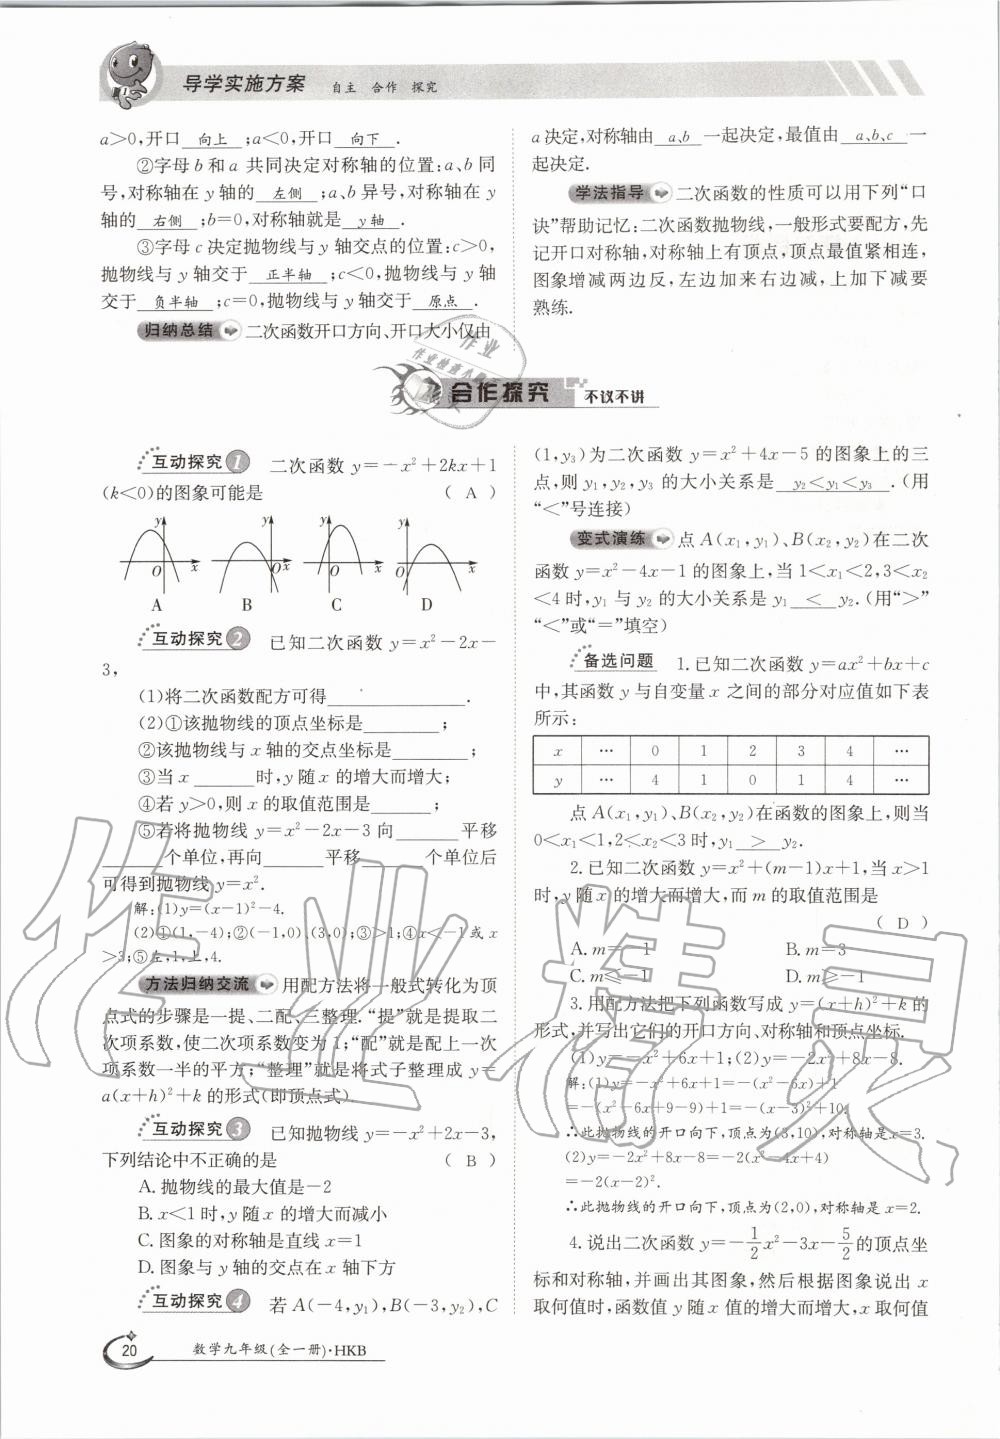 导学实施方案 自主 合作 探究
a>0,开口 向上 ;a<0,开口 向下 .
②字母 b 和 a 共同决定对称轴的位置:a、b 同
号,对称轴在 y 轴的 左侧 ;a、b 异号,对称轴在 y
轴的 右侧 ;b=0,对称轴就是 y 轴 .
③字母 c 决定抛物线与 y 轴交点的位置:c>0,
抛物线与 y 轴交于 正半轴 ;c<0,抛物线与 y 轴
交于 负半轴 ;c=0,抛物线与 y 轴交于 原点 .
归纳总结 二次函数开口方向、开口大小仅由
a 决定,对称轴由 a、b 一起决定,最值由 a、b、c 一
起决定.
学法指导 二次函数的性质可以用下列“口
诀”帮助记忆:二次函数抛物线,一般形式要配方,先
记开口对称轴,对称轴上有顶点,顶点最值紧相连,
图象增减两边反,左边加来右边减,上加下减要
熟练.
合作探究 不议不讲
互动探究 1 二次函数 y=-x²+2kx+1
(k<0)的图象可能是 ( A )
y y y y
O x O x O x O x
A B C D
互动探究 2 已知二次函数 y=x²-2x-
3,
(1)将二次函数配方可得____________.
(2)①该抛物线的顶点坐标是________;
②该抛物线与 x 轴的交点坐标是________;
③当 x ______时,y 随 x 的增大而增大;
④若 y>0,则 x 的取值范围是______;
⑤若将抛物线 y=x²-2x-3 向______平移
______个单位,再向______平移______个单位后
可得到抛物线 y=x².
解:(1)y=(x-1)²-4.
(2)①(1,-4);②(-1,0),(3,0);③>1;④x<-1 或 x
>3;⑤左,1,上,4.
方法归纳交流 用配方法将一般式转化为顶
点式的步骤是一提、二配、三整理.“提”就是提取二
次项系数,使二次项系数变为 1;“配”就是配上一次
项系数一半的平方;“整理”就是将式子整理成 y=
a(x+h)²+k 的形式(即顶点式).
互动探究 3 已知抛物线 y=-x²+2x-3,
下列结论中不正确的是 ( B )
A. 抛物线的最大值是-2
B. x<1 时,y 随 x 的增大而减小
C. 图象的对称轴是直线 x=1
D. 图象与 y 轴的交点在 x 轴下方
互动探究 4 若 A(-4,y₁),B(-3,y₂),C
(1,y₃)为二次函数 y=x²+4x-5 的图象上的三
点,则 y₁,y₂,y₃ 的大小关系是 y₂<y₁<y₃ .(用
“<”号连接)
变式演练 点 A(x₁,y₁)、B(x₂,y₂)在二次
函数 y=x²-4x-1 的图象上,当 1<x₁<2,3<x₂
<4 时,y₁ 与 y₂ 的大小关系是 y₁ < y₂.(用“>”
“<”或“=”填空)
备选问题 1. 已知二次函数 y=ax²+bx+c
中,其函数 y 与自变量 x 之间的部分对应值如下表
所示:
x … 0 1 2 3 4 …
y … 4 1 0 1 4 …
点 A(x₁,y₁)、B(x₂,y₂)在函数的图象上,则当
0<x₁<1,2<x₂<3 时,y₁ > y₂.
2. 已知二次函数 y=x²+(m-1)x+1,当 x>1
时,y 随 x 的增大而增大,而 m 的取值范围是
( D )
A. m=-1 B. m=3
C. m≤-1 D. m≥-1
3. 用配方法把下列函数写成 y=(x+h)²+k 的
形式,并写出它们的开口方向、对称轴和顶点坐标.
(1)y=-x²+6x+1;(2)y=-2x²+8x-8.
解:(1)y=-x²+6x+1=-(x²-6x)+1
=-(x²-6x+9-9)+1=-(x-3)²+10.
∴此抛物线的开口向下,顶点为(3,10),对称轴是x=3.
(2)y=-2x²+8x-8=-2(x²-4x+4)
=-2(x-2)².
∴此抛物线的开口向下,顶点为(2,0),对称轴是 x=2.
4. 说出二次函数 y=-1/2x²-3x-5/2的顶点坐
标和对称轴,并画出其图象,然后根据图象说出 x
取何值时,函数值 y 随 x 值的增大而增大,x 取何值
20 数学九年级(全一册)·HKB
作业精灵